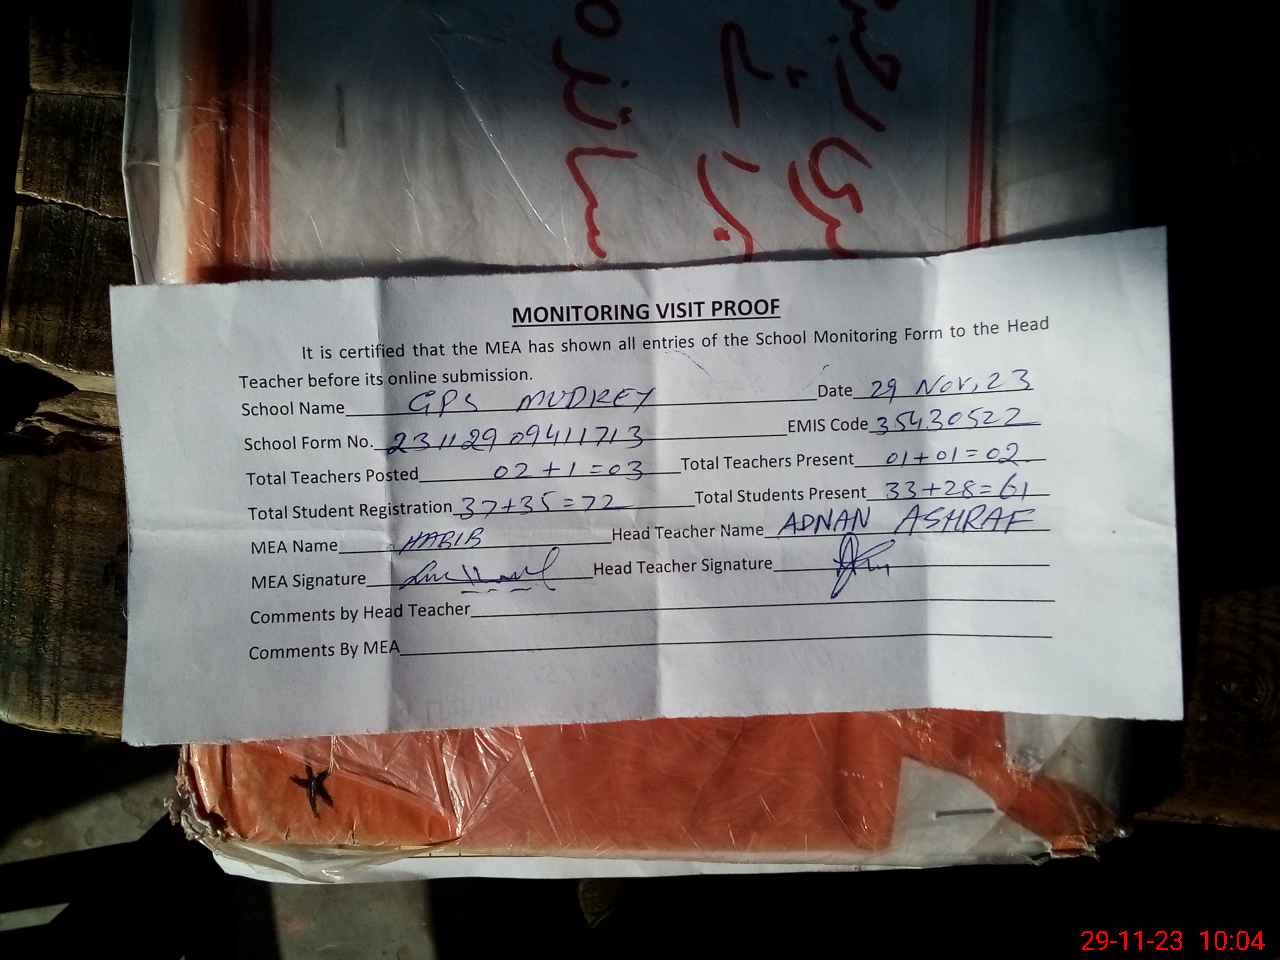 سری رجسٹر
برائے
اساتذہ
MONITORING VISIT PROOF
It is certified that the MEA has shown all entries of the School Monitoring Form to the Head
Teacher before its online submission.
School Name GPS MUDREY Date 29 Nov, 23
School Form No. 23112909411713 EMIS Code 35430522
Total Teachers Posted 02+1=03 Total Teachers Present 01+01=02
Total Student Registration 37+35=72 Total Students Present 33+28=61
MEA Name HABIB Head Teacher Name ADNAN ASHRAF
MEA Signature Head Teacher Signature
Comments by Head Teacher
Comments By MEA
29-11-23 10:04